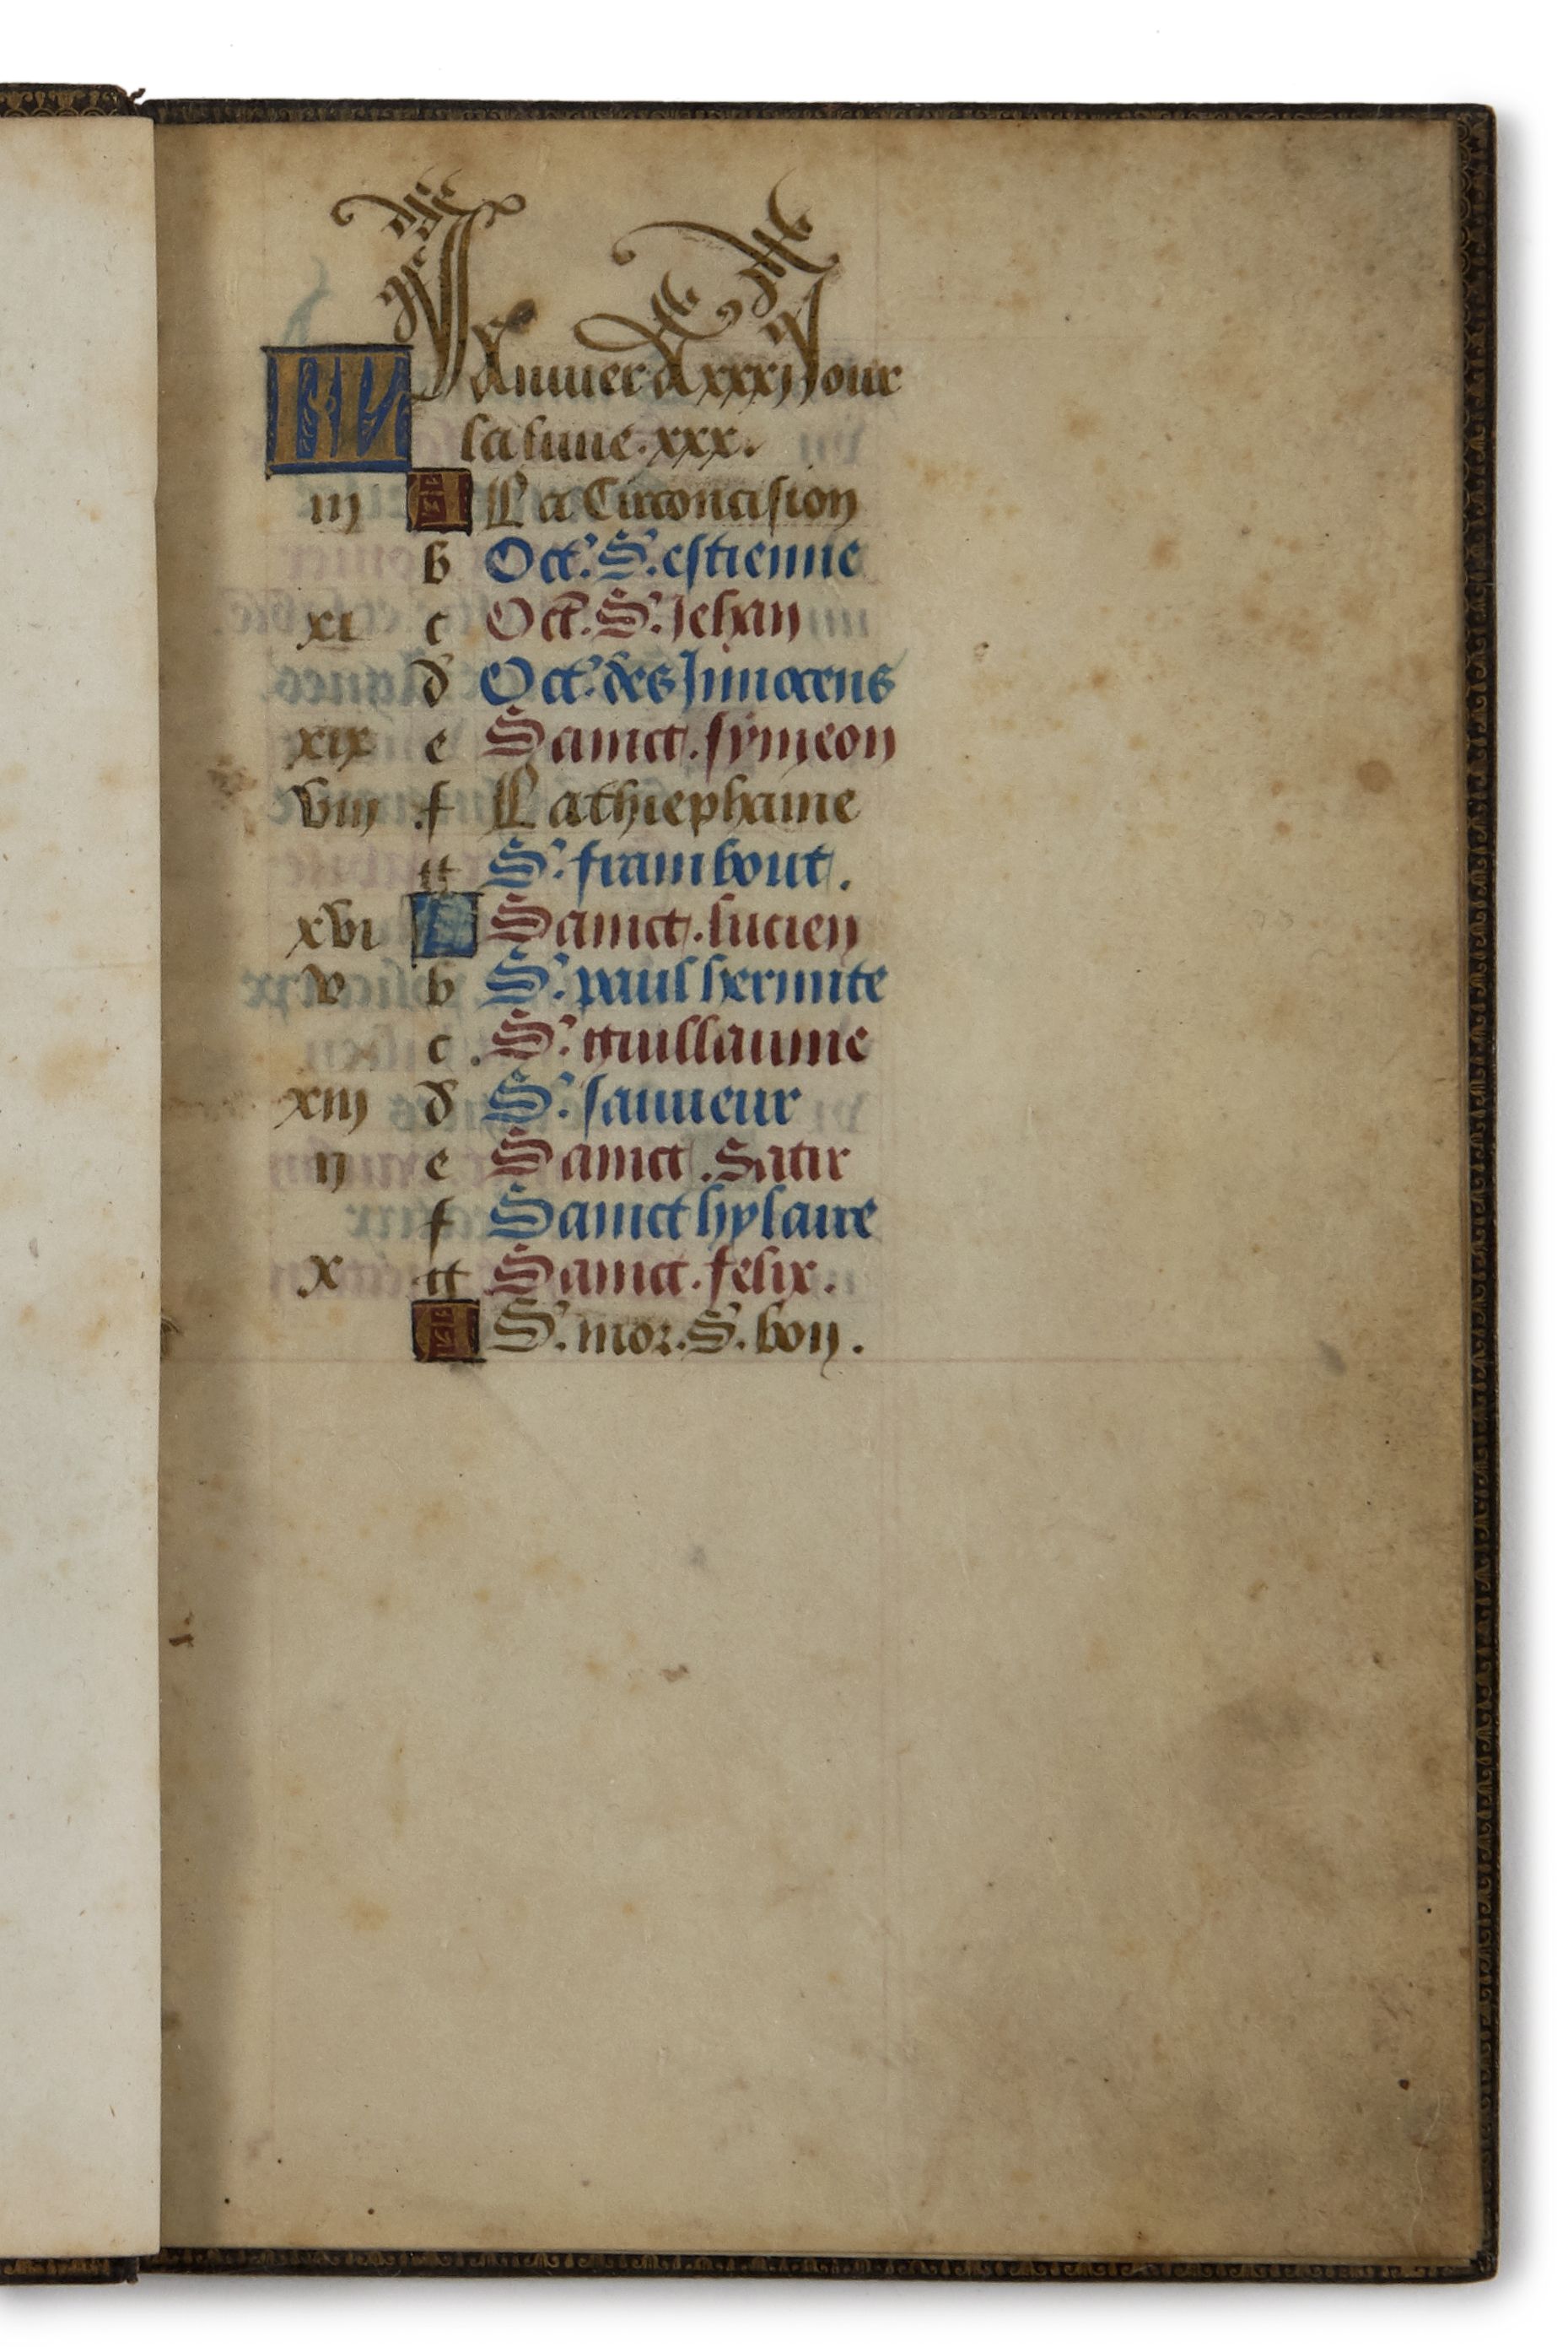 KL Januier a xxxi Jour
la lune . xxx.
iij A La Circoncision
b Oct. S. estienne
xi c Oct. S. Jehan
d Oct. des Innocens
xix e Sainct. symeon
viij .f La thiephaine
g S. frambout.
xvi A Sainct. lucien
v b S. paul hermite
c . S. guillaume
xiij d S. sauueur
ij e Sainct. Satir
f Sainct hylaire
x g Sainct. felix.
A S. mor. S. bon.
1.